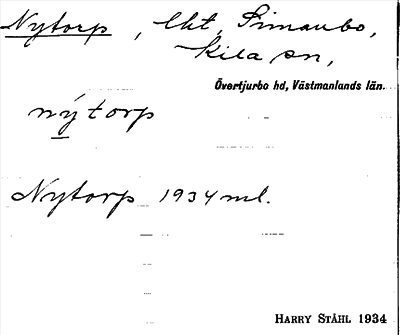 Nytorp, lht, Simanbo,
Kila sn,
Övertjurbo hd, Västmanlands län.
nýtorp
Nytorp 1934 ml.
HARRY STÅHL 1934